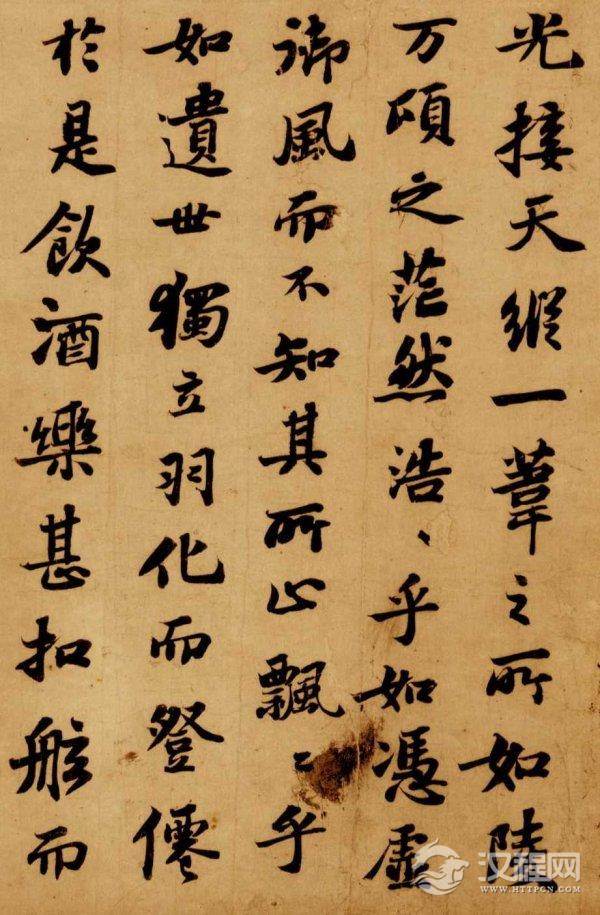 光接天縱一葦之所如陵
万頃之茫然浩、乎如憑虛
御風而不知其所止飄〻乎
如遺世獨立羽化而登僊
於是飲酒樂甚扣舷而
汉程网
WWW.HTTPCN.COM